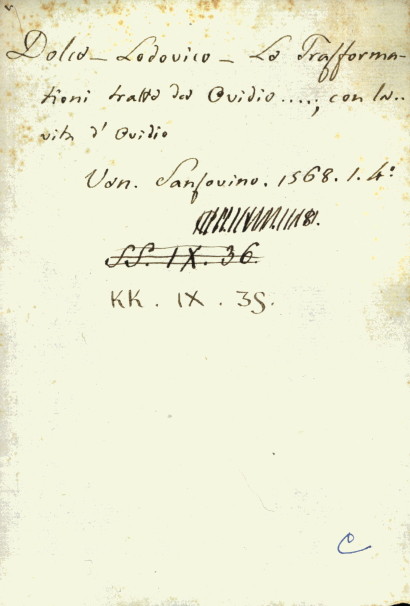 Dolce - Lodovico - Le Trasforma-
tioni tratte da Ovidio ....., con la..
vita d' Ovidio
Ven. Sansovino. 1568. 1. 4°
SS. IX. 36.
KK. IX. 35.
C